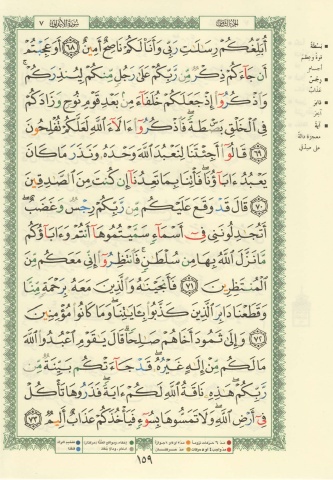 الجزء الثامن
سورة الأعراف ٧
أُبَلِّغُكُمْ رِسَٰلَٰتِ رَبِّى وَأَنَا۠ لَكُمْ نَاصِحٌ أَمِينٌ ٦٨ أَوَعَجِبْتُمْ
أَن جَآءَكُمْ ذِكْرٌ مِّن رَّبِّكُمْ عَلَىٰ رَجُلٍ مِّنكُمْ لِيُنذِرَكُمْ
وَٱذْكُرُوٓا۟ إِذْ جَعَلَكُمْ خُلَفَآءَ مِنۢ بَعْدِ قَوْمِ نُوحٍ وَزَادَكُمْ
فِى ٱلْخَلْقِ بَصْۜطَةً فَٱذْكُرُوٓا۟ ءَالَآءَ ٱللَّهِ لَعَلَّكُمْ تُفْلِحُونَ
٦٩ قَالُوٓا۟ أَجِئْتَنَا لِنَعْبُدَ ٱللَّهَ وَحْدَهُۥ وَنَذَرَ مَا كَانَ
يَعْبُدُ ءَابَآؤُنَا فَأْتِنَا بِمَا تَعِدُنَآ إِن كُنتَ مِنَ ٱلصَّٰدِقِينَ
٧٠ قَالَ قَدْ وَقَعَ عَلَيْكُم مِّن رَّبِّكُمْ رِجْسٌ وَغَضَبٌ
أَتُجَٰدِلُونَنِى فِىٓ أَسْمَآءٍ سَمَّيْتُمُوهَآ أَنتُمْ وَءَابَآؤُكُم
مَّا نَزَّلَ ٱللَّهُ بِهَا مِن سُلْطَٰنٍ فَٱنتَظِرُوٓا۟ إِنِّى مَعَكُم مِّنَ
ٱلْمُنتَظِرِينَ ٧١ فَأَنجَيْنَٰهُ وَٱلَّذِينَ مَعَهُۥ بِرَحْمَةٍ مِّنَّا
وَقَطَعْنَا دَابِرَ ٱلَّذِينَ كَذَّبُوا۟ بِـَٔايَٰتِنَا وَمَا كَانُوا۟ مُؤْمِنِينَ
٧٢ وَإِلَىٰ ثَمُودَ أَخَاهُمْ صَٰلِحًا قَالَ يَٰقَوْمِ ٱعْبُدُوا۟ ٱللَّهَ
مَا لَكُم مِّنْ إِلَٰهٍ غَيْرُهُۥ قَدْ جَآءَتْكُم بَيِّنَةٌ مِّن
رَّبِّكُمْ هَٰذِهِۦ نَاقَةُ ٱللَّهِ لَكُمْ ءَايَةً فَذَرُوهَا تَأْكُلْ
فِىٓ أَرْضِ ٱللَّهِ وَلَا تَمَسُّوهَا بِسُوٓءٍ فَيَأْخُذَكُمْ عَذَابٌ أَلِيمٌ ٧٣
١٥٩
بصطة
قوة وعظم
أجسام
رجس
عذاب
آية
معجزة دالة
على صدقي